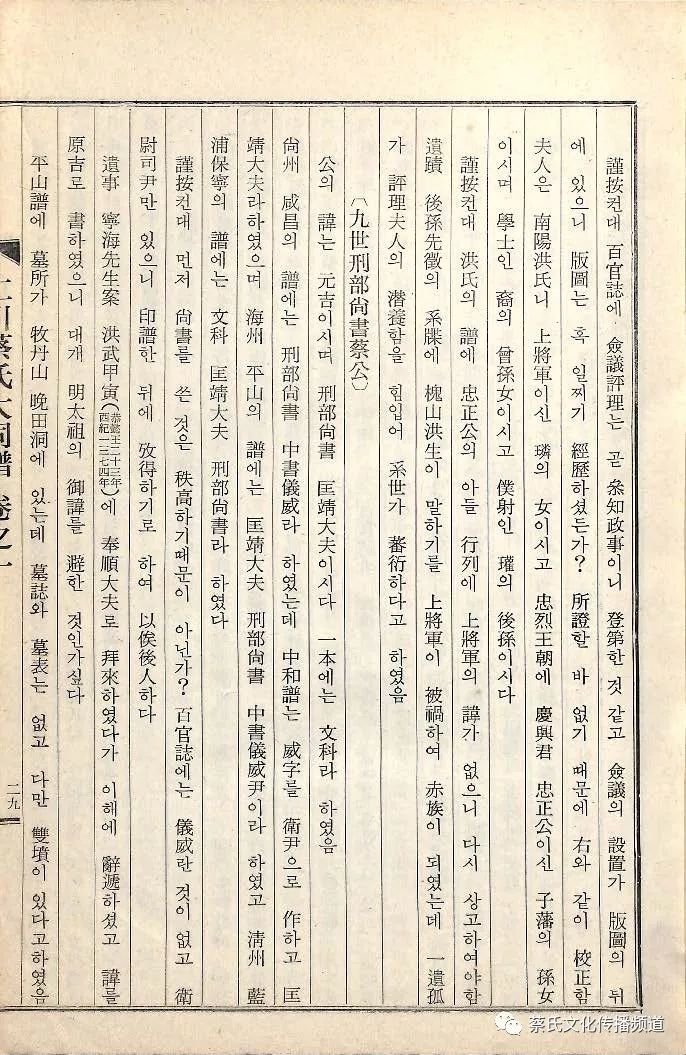 謹按컨대 百官誌에 僉議評理는 곧 叅知政事이니 登第한 것 같고 僉議의 設置가 版圖의 뒤
에 있으니 版圖는 혹 일찌기 經歷하셨든가? 所證할 바 없기 때문에 右와 같이 校正함
夫人은 南陽洪氏니 上將軍이신 璘의 女이시고 忠烈王朝에 慶興君 忠正公이신 子藩의 孫女
이시며 學士인 裔의 曾孫女이시고 僕射인 瓘의 後孫이시다
謹按컨대 洪氏의 譜에 忠正公의 아들 行列에 上將軍의 諱가 없으니 다시 상고하여야함
遺蹟 後孫先徵의 系牒에 槐山洪生이 말하기를 上將軍이 被禍하여 赤族이 되였는데 一遺孤
가 評理夫人의 潜養함을 힘입어 系世가 蕃衍하다고 하였음
〔九世刑部尙書蔡公〕
公의 諱는 元吉이시며 刑部尙書 匡靖大夫이시다 一本에는 文科라 하였음
尙州 咸昌의 譜에는 刑部尙書 中書儀威라 하였는데 中和譜는 威字를 衛尹으로 作하고 匡
靖大夫라하였으며 海州 平山의 譜에는 匡靖大夫 刑部尙書 中書儀威尹이라 하였고 淸州 藍
浦保寧의 譜에는 文科 匡靖大夫 刑部尙書라 하였다
謹按컨대 먼저 尙書를 쓴 것은 秩高하기때문이 아닌가? 百官誌에는 儀威란 것이 없고 衛
尉司尹만 있으니 印譜한 뒤에 攷得하기로 하여 以俟後人하다
遺事 寧海先生案 洪武甲寅(恭愍王二十三年 西紀一三七四年)에 奉順大夫로 拜來하였다가 이해에 辭遞하셨고 諱를
原吉로 書하였으니 대개 明太祖의 御諱를 避한 것인가싶다
平山譜에 墓所가 牧丹山 晩田洞에 있는데 墓誌와 墓表는 없고 다만 雙墳이 있다고하였음
川蔡氏大同譜 卷之一
二九
蔡氏文化传播频道